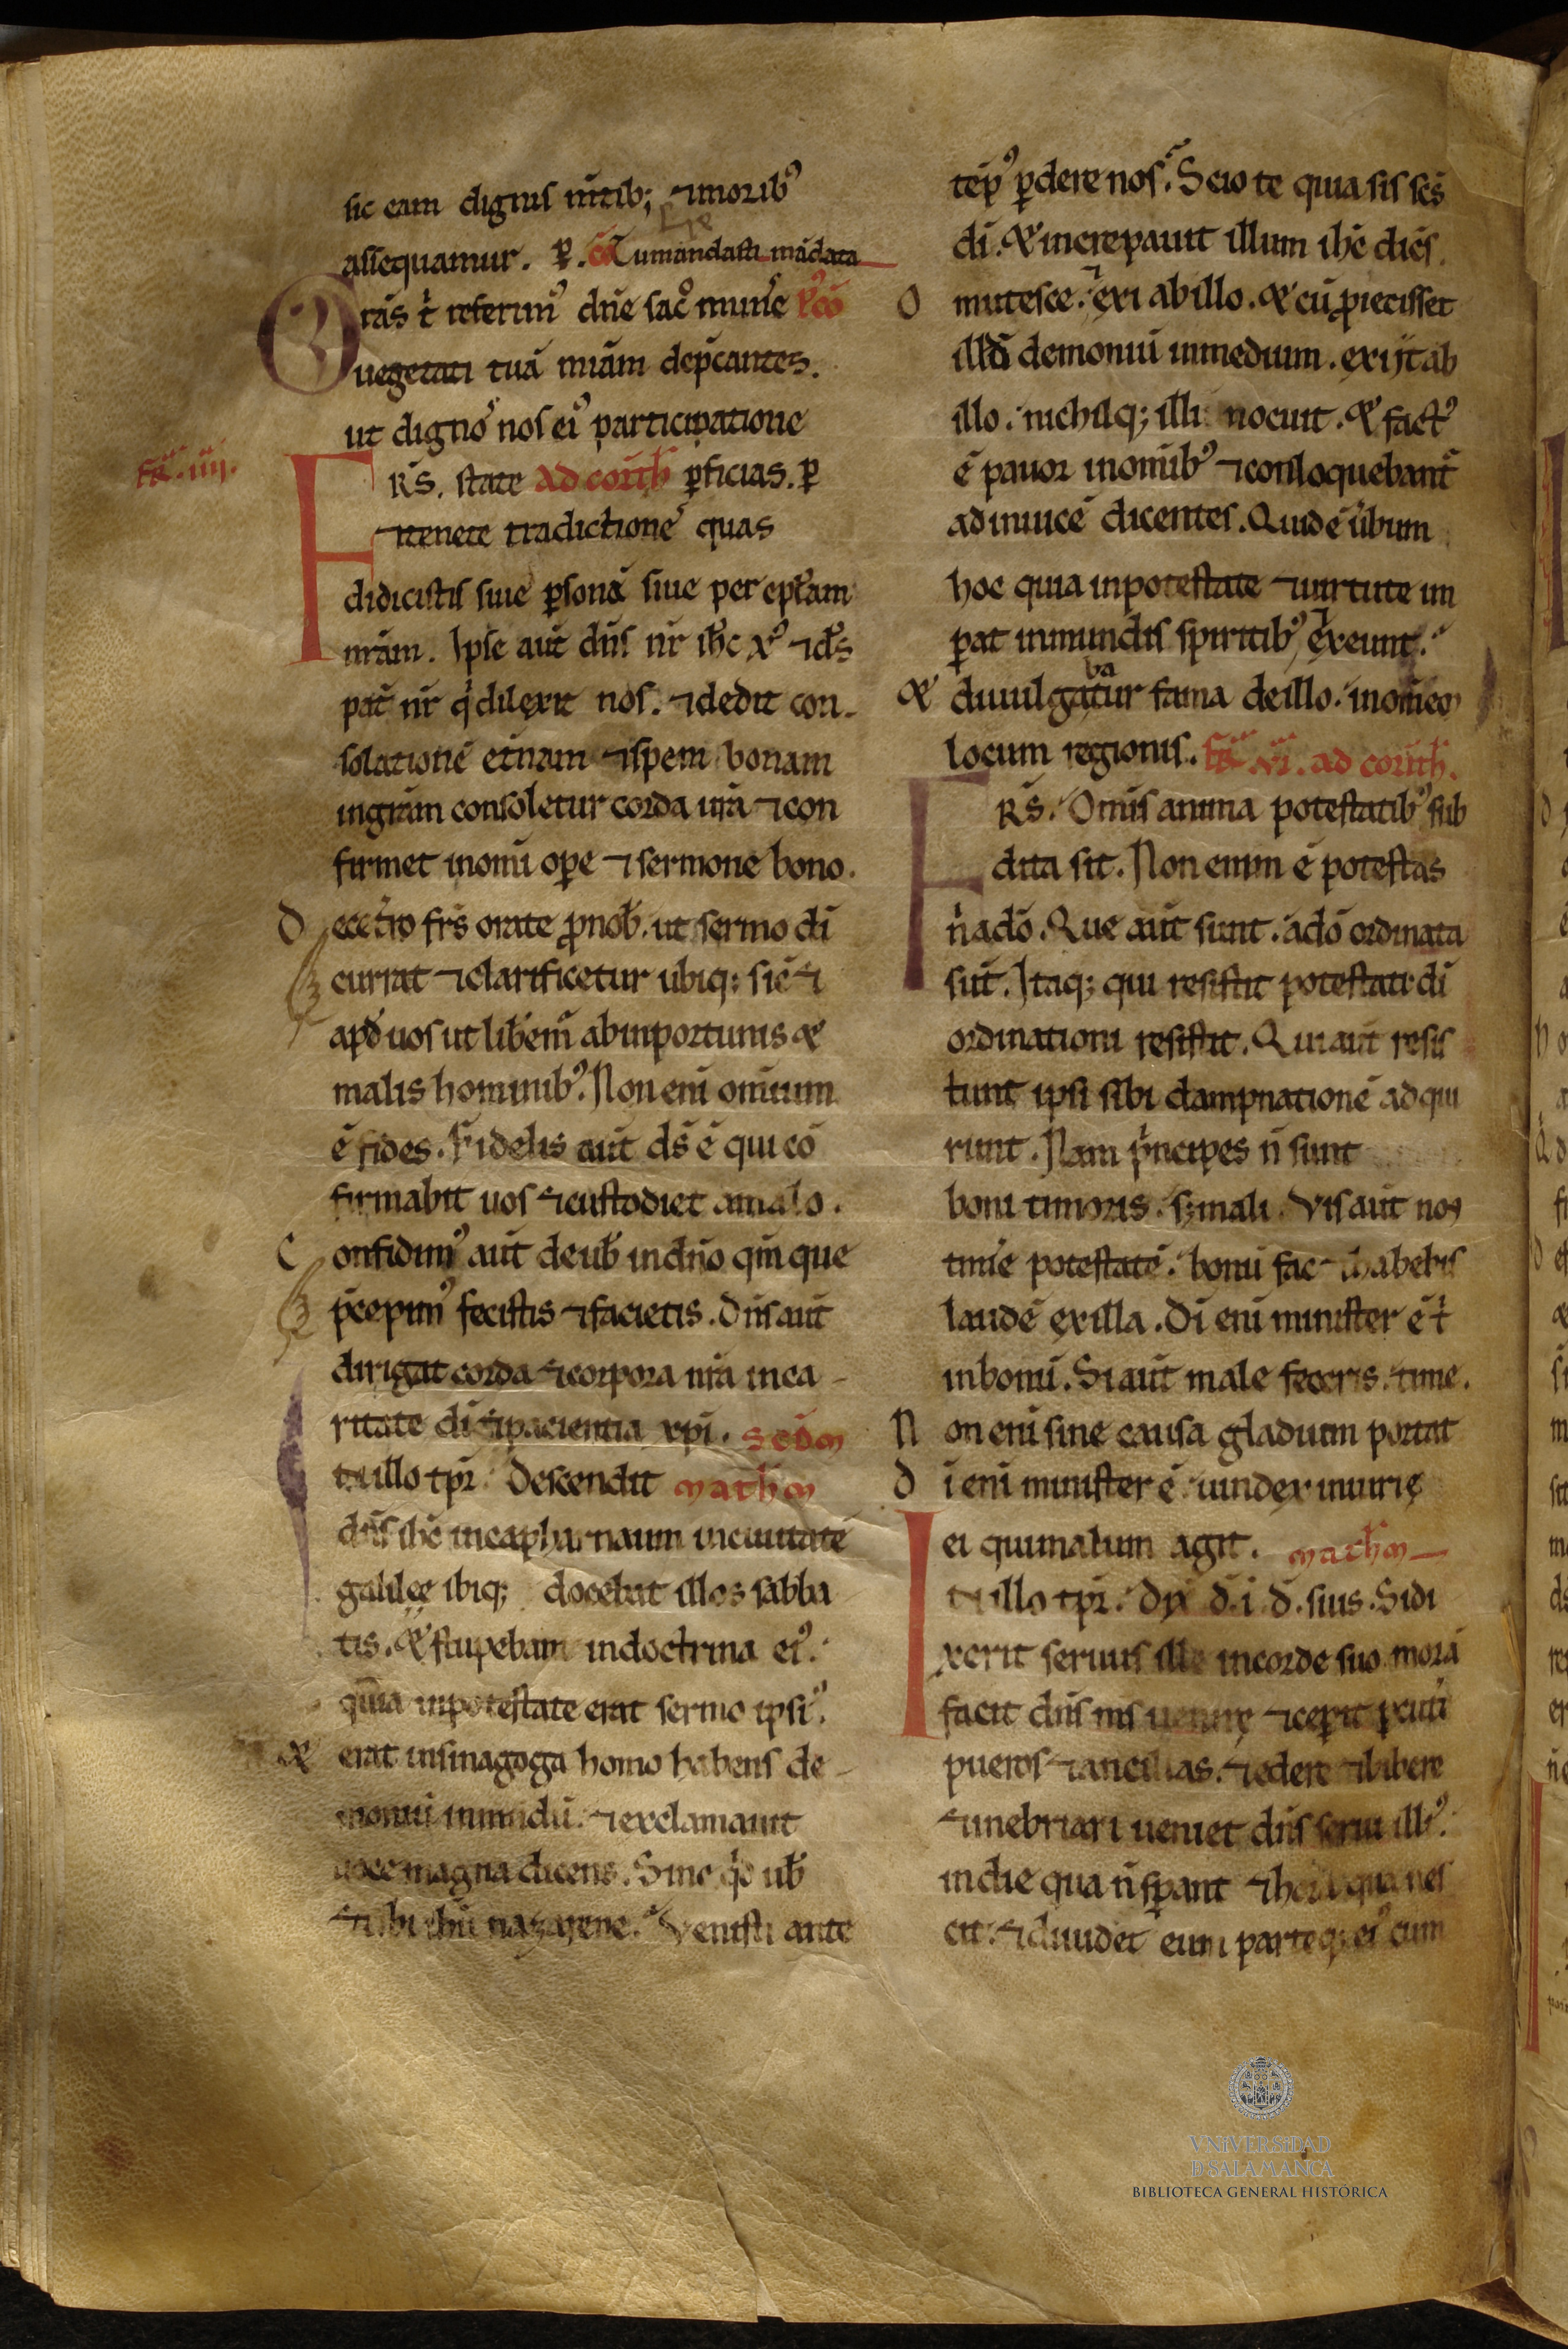 sic eam dignis m̄tib; ⁊ moribꝰ
assequamur. ꝑ. cō Tu mandasti mādata
G rās t̄ referimꝰ dn̄e sac̊ mun̄e p̊cō
uegetati tuā miām dep̄cantes.
ut dignoꝰ nos eiꝰ participatione
fr̄. iiii.
F Rs̄. state ad corith̄ ꝑficias. ꝑ
⁊ tenete tradictionēs quas
didicistis siue ꝑsonā siue per ep̄lam
nr̄am. Ipse aut̄ dn̄s nr̄ ih̄c xꝰ ⁊ ds̄
pat̄ nr̄ q̇ dilexit nos. ⁊ dedit con-
solationē et̄nam ⁊ spem bonam
in gr̄am consoletur corda ur̄a ⁊ con
firmet in om̄i oꝑe ⁊ sermone bono.
D ecet̄ro fr̄s orate ꝓ nob̄. ut sermo dī
currat ⁊ clarificetur ubiq; sic̄ ⁊
apđ uos ut lib̄em̄ ab inportunis &
malis hominibꝰ. Non enī omīum
ē fides. Fidelis aut̄ ds̄ ē qui cō
firmabit uos ⁊ custodiet a malo.
C onfidimꝰ aut̄ de ub̄ in dn̄o qm̄ que
p̄cepimꝰ fecistis ⁊ facietis. Dn̄s aut̄
dirigat corda ⁊ corpora nr̄a in ca-
ritate dī ⁊ pacientia xp̄i. scd̄m
In illo tp̄r. Descendit math̄m
dn̄s ih̄c in capharnaum in ciuitatē
galileę ibiq; docebat illos sabba
tis. & stupebant in doctrina eiꝰ.
quia in potestate erat sermo ipsiꝰ.
& erat in sinagoga homo habens de-
moniū inmundū. ⁊ exclamauit
uoce magna dicens. Sine q̇d ub̄
⁊ tibi ih̄u nazarene. Venisti ante
tēpꝰ ꝑdere nos. Scio te quia sis sc̄s
dī. & increpauit illum ih̄c dicēs.
O mutesce. ⁊ exi ab illo. & cū ꝓiecisset
illđ demoniū in medium. exijt ab
illo. nichilq; illi nocuit. & factꝰ
ē pauor in om̄ibꝰ ⁊ conloquebant̄
ad inuicē dicentes. Quid ē ūbum
hoc quia in potestate ⁊ uirtute im
ꝑat inmundis spiritibꝰ, ⁊ exeunt.
& diuulgabatur fama de illo. in om̄em
locum regionis. fr̄. vi. ad corith̄.
F Rs̄. Om̄is anima potestatibꝰ sub
dita sit. Non enim ē potestas
n̄ a dō. Que aut̄ sunt. a dō ordinata
sūt. Itaq; qui resistit potestati dī
ordinationi resistit. Qui aut̄ resis
tunt ipsi sibi dampnationē adqui
runt. Nam p̄ncipes n̄ sunt
boni timoris. sꝫ mali. Vis aut̄ non
tim̄e potestatē. bonū fac ⁊ habebis
laudē ex illa. Dī enī minister ē t̄
in bonū. Si aut̄ male feceris. time.
N on enī sine causa gladium portat
D ī enī minister ē. uindex in irę
ei qui malum agit. math̄m
I n illo tp̄r. Dx̄ d̄. i. d̄. suis. Si di
xerit seruus ille in corde suo morā
facit dn̄s m̄s uenire ⁊ ceꝑit ꝑcuti
pueros ⁊ ancillas. ⁊ edere ⁊ bibere
⁊ inebriari ueniet dn̄s serui illiꝰ.
in die qua n̄ sꝑant ⁊ hora qua nes
cit. ⁊ diuidet eum parteq; eiꝰ cum
VNiVERSiDAD
D SALAMANCA
BIBLIOTECA GENERAL HISTÓRICA